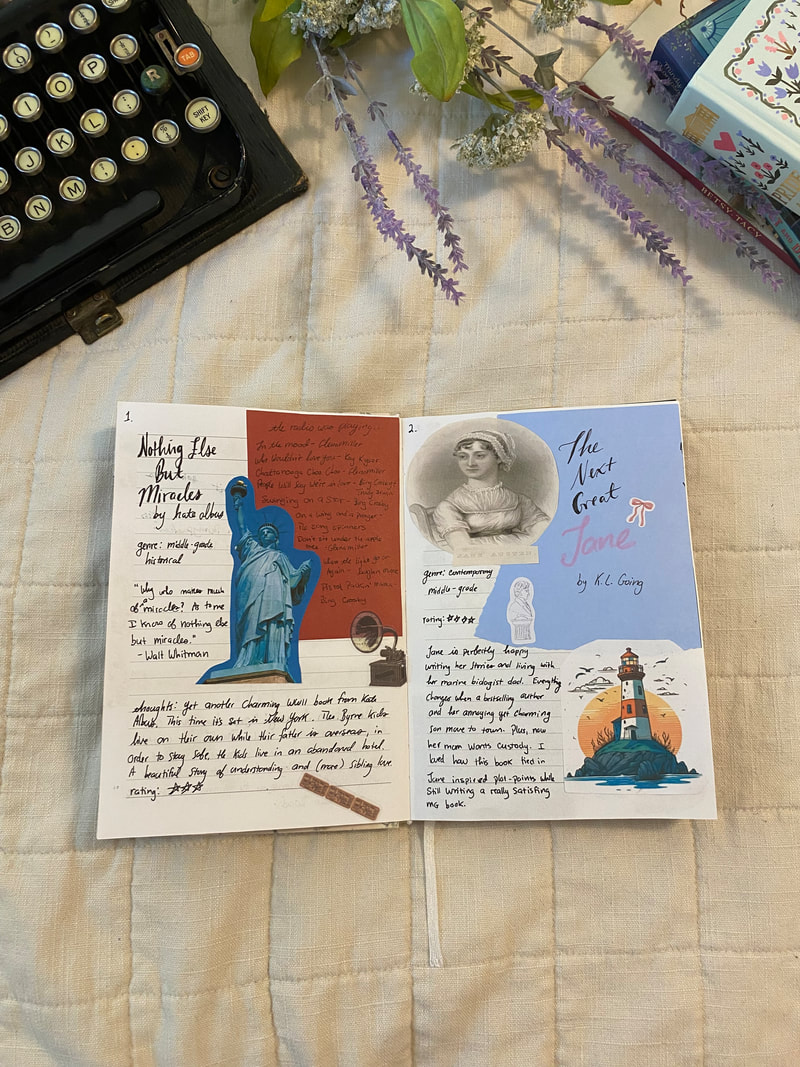 TAB
R
I
O
P
SHIFT KEY
J
K
L
;
B
N
M
BETSY TACY
1.
Nothing Else
But
Miracles
by Kate Albus
genre: middle-grade
historical
"Why who makes much
of miracles? As to me
I know of nothing else
but miracles."
- Walt Whitman
the radio was playing...
In the mood - Glenn Miller
Who wouldn't love you - Kay Kyser
Chattanooga Choo Choo - Glenn Miller
People Will Say We're in Love - Bing Crosby &
Trudy Erwin
Swinging on a Star - Bing Crosby
On a wing and a prayer -
The Song Spinners
Don't sit under the apple
tree - Glenn Miller
When the lights go on
Again - Vaughn Monroe
Pistol Packin' Mama -
Bing Crosby
thoughts: yet another charming WWII book from Kate
Albus. This time it's set in New York. The Byrne Kids
live on their own while their father is overseas, in
order to stay safe, the kids live in an abandoned hotel.
A beautiful story of understanding and (more) sibling love
rating: ☆☆☆
2.
JANE AUSTEN
The
Next
Great
Jane
by K.L. Going
genre: contemporary
middle-grade
rating: ☆☆☆☆
Jane is perfectly happy
writing her stories and living with
her marine biologist dad. Everything
changes when a bestselling author
and her annoying yet charming
son move to town. Plus, now
her mom wants custody. I
loved how this book tied in
Jane inspired plot-points while
still writing a really satisfing
MG book.